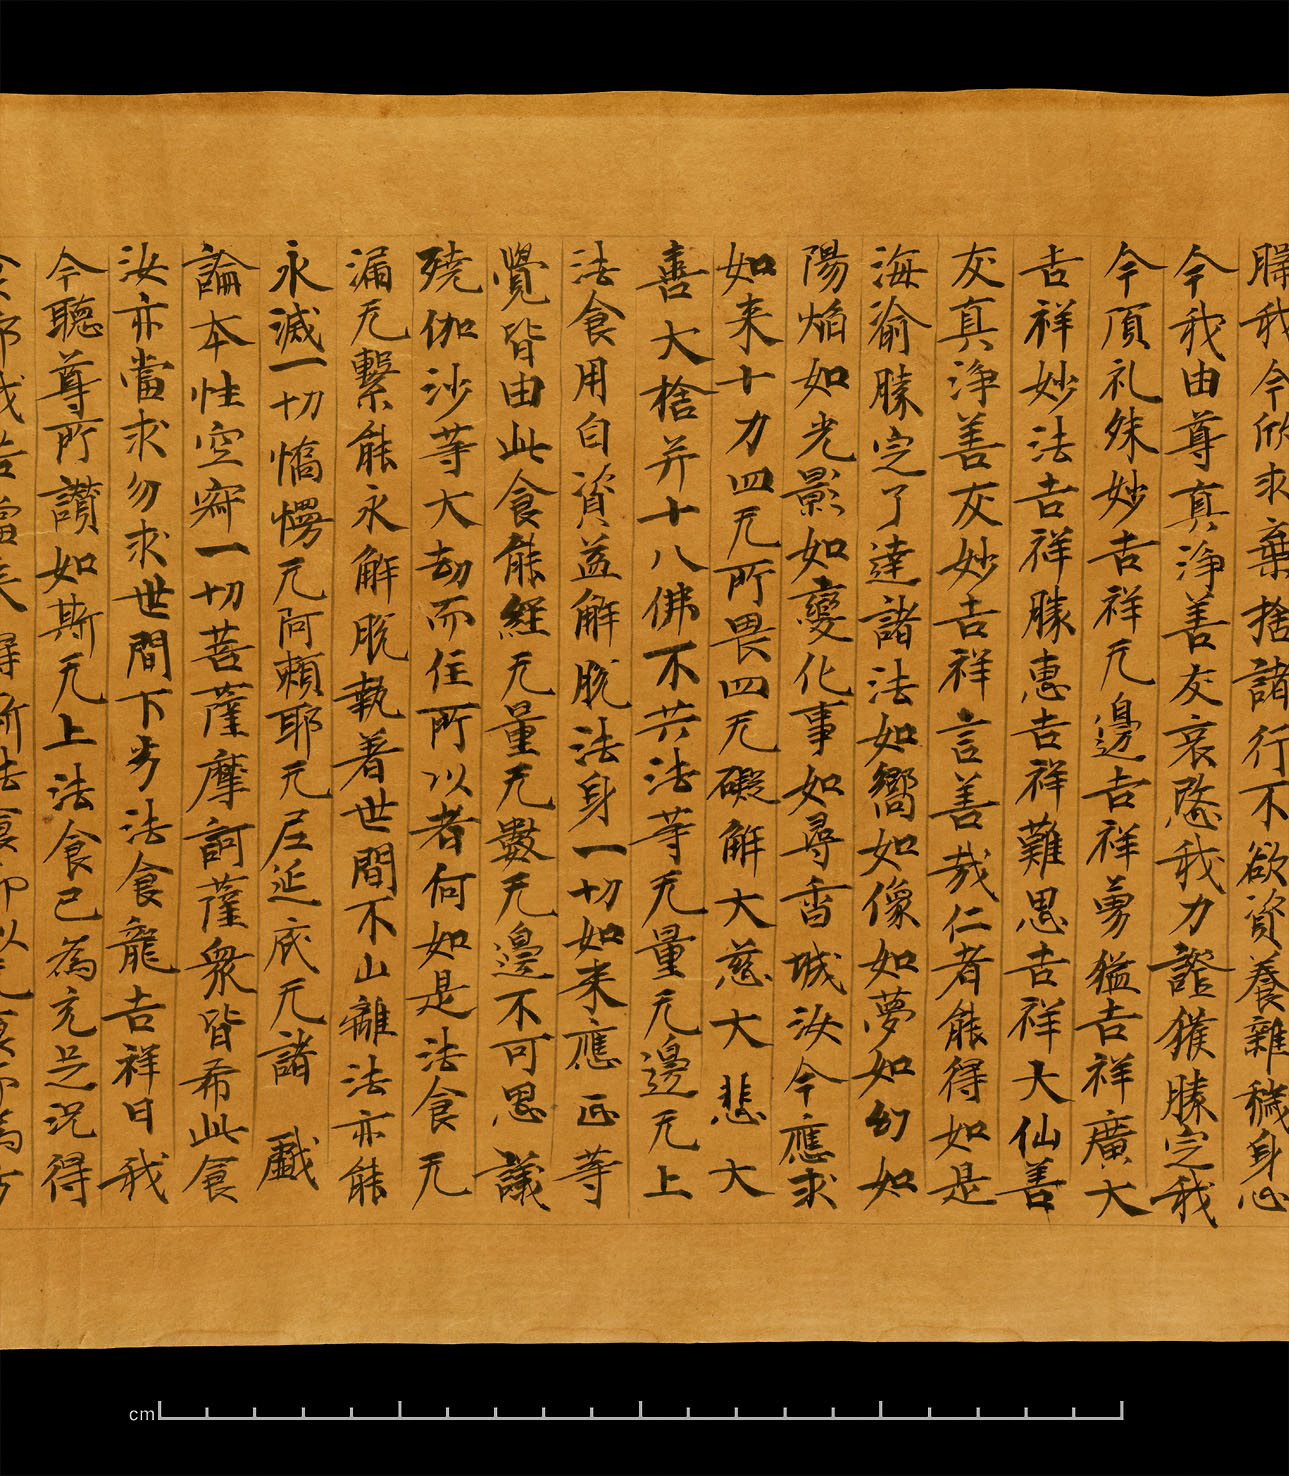 我今欣求棄捨諸行不欲資養雜穢身心
今我由尊真淨善友哀愍我力證獲勝定我
今頂礼殊妙吉祥无邊吉祥勇猛吉祥廣大
吉祥妙法吉祥勝惠吉祥難思吉祥大仙善
友真淨善友妙吉祥言善哉仁者能得如是
海喻勝定了達諸法如嚮如像如夢如幻如
陽焰如光影如變化事如尋香城汝今應求
如来十力四无所畏四无礙解大慈大悲大
喜大捨并十八佛不共法等无量无邊无上
法食用自資益解脫法身一切如来應正等
覺皆由此食能經无量无數无邊不可思議
殑伽沙等大劫而住所以者何如是法食无
漏无繫能永解脫執著世間不出離法亦能
永滅一切憍慢无阿頼耶无尼延底无諸戲
論本性空寂一切菩薩摩訶薩衆皆希此食
汝亦當求勿求世間下劣法食龍吉祥曰我
今聽尊所讚如斯无上法食已為充足況得